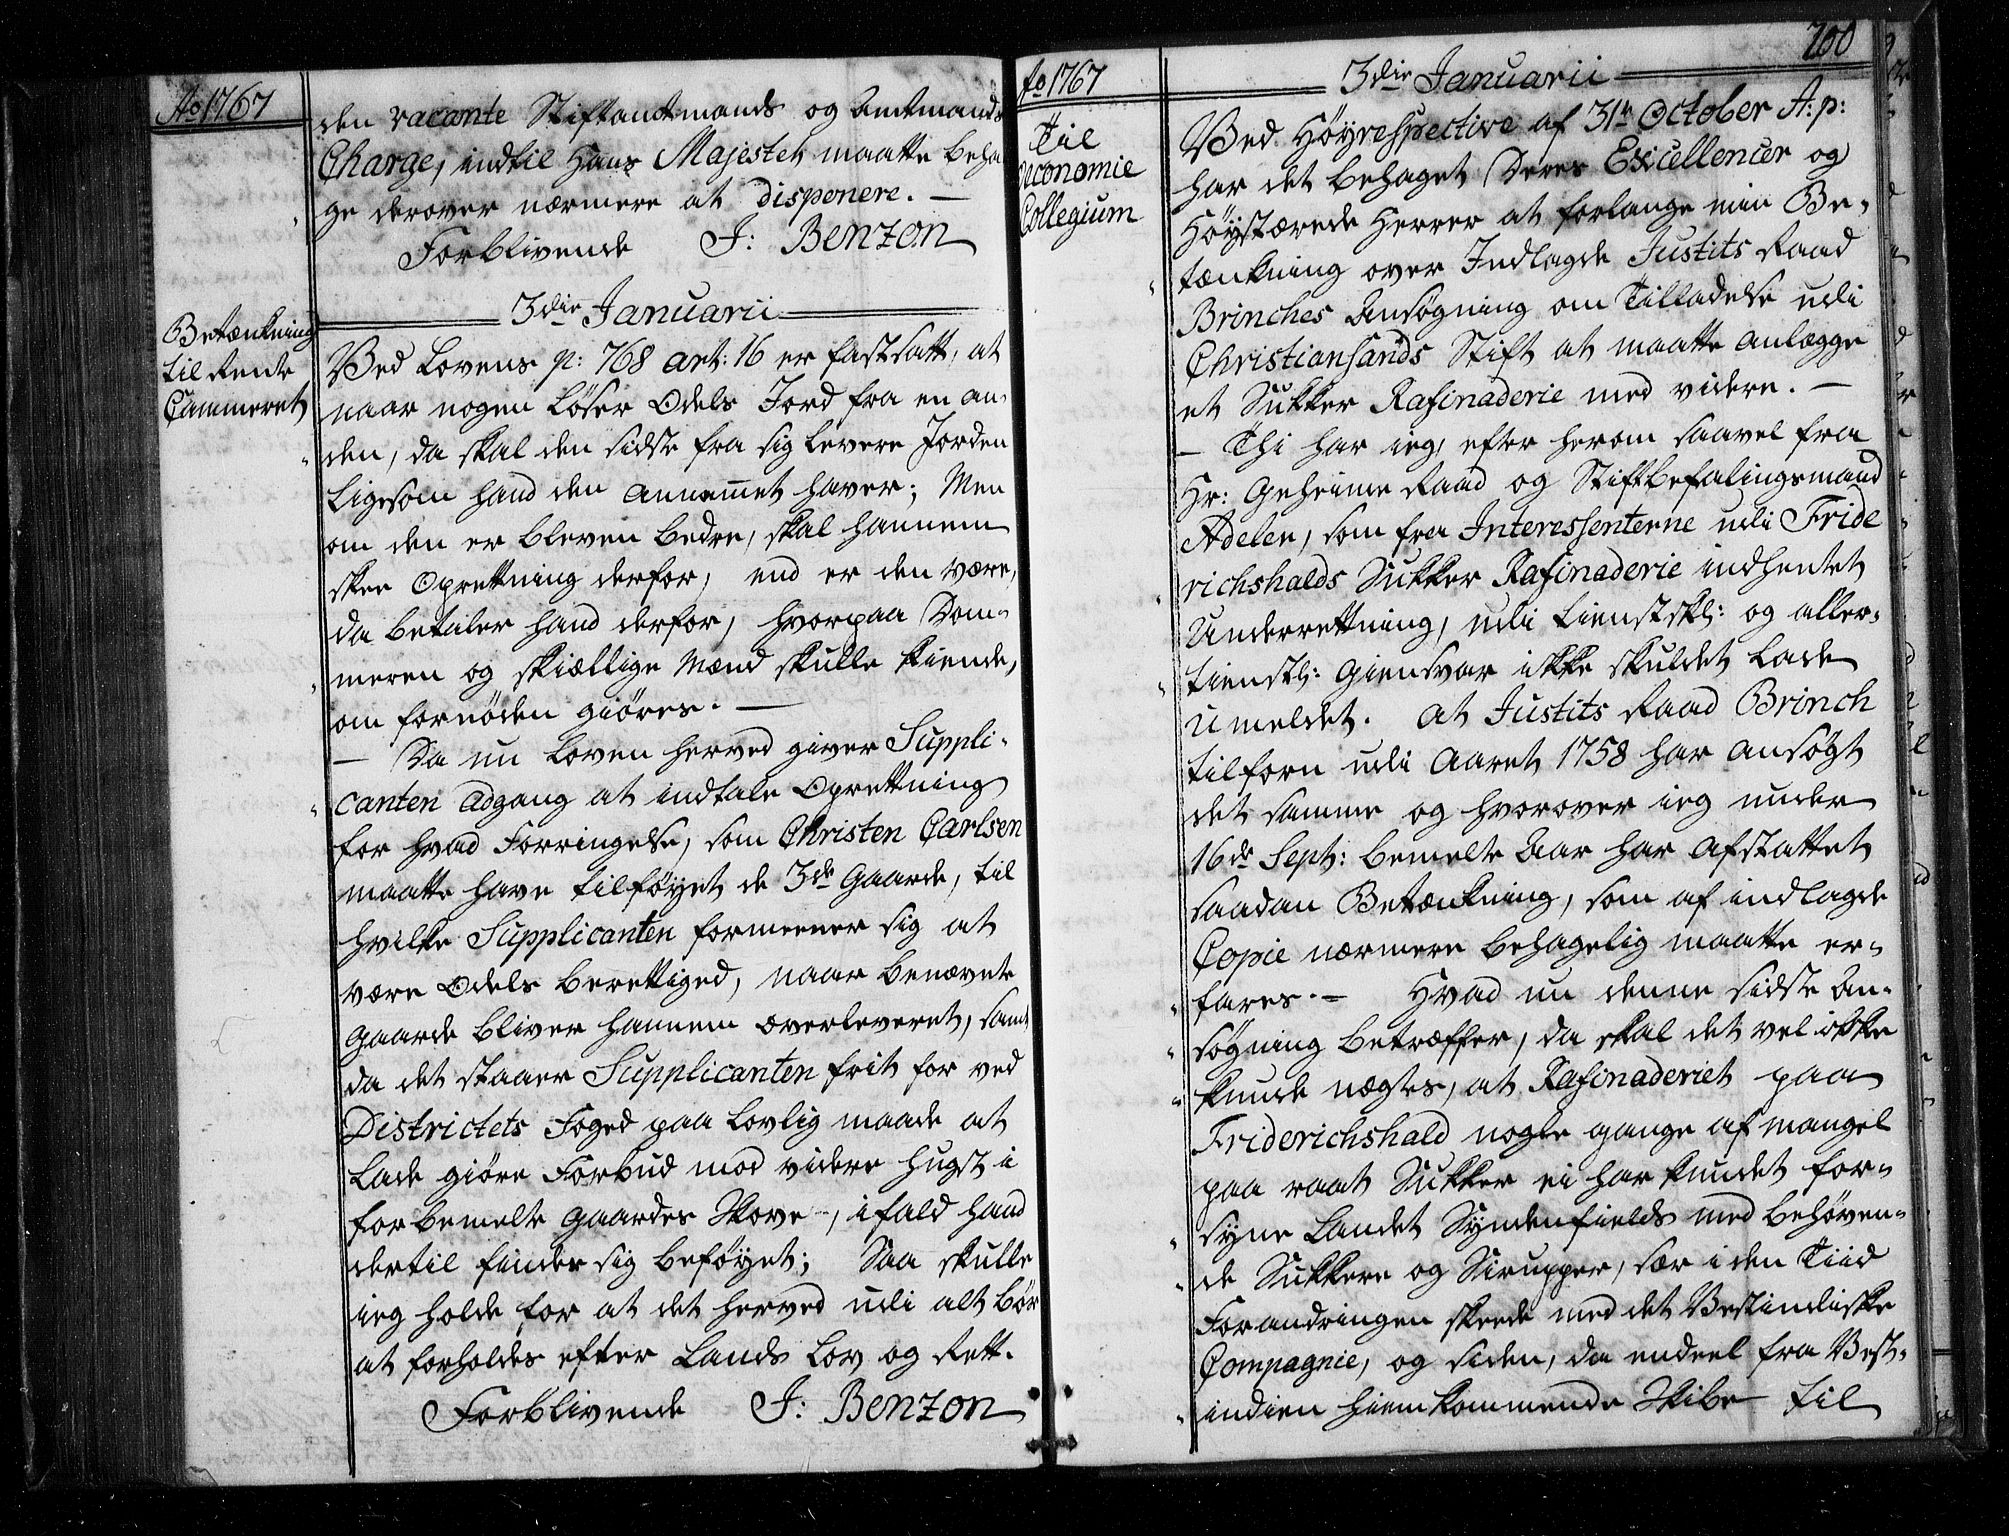 Ao 1767
den vacante Stiftamtmands og Amtmands
Charge, indtil Hans Majestet maatte beha
ge derover nærmere at disponere. —
Forblivende J: Benzon
3die Januarii
Betænkning
til Rente
Cammeret
Ved Lovens p: 768 art: 16 er fastsatt, at
naar nogen løser Odels Jord fra en an-
den, da skal den sidste fra sig levere Jorden
ligesom hand den annammet haver; Men
om den er bleven bedre, skal hannem
skee Oprettning derfor, end er den være,
da betaler hand derfor, hvorpaa Dom-
meren og skiællige Mænd skulle kiende,
om fornøden giøres. —
— Da nu Loven herved giver Suppli-
canten Adgang at indtale Oprettning
for hvad Forringelse, som Christen Carlsen
maatte have tilføyet de 3de Gaarde, til
hvilke Supplicanten formeener sig at
være Odels berettiged, naar benævnte
Gaarde bliver hannem overleveret, samt
da det staaer Supplicanten frit for ved
Districtets Foged paa lovlig maade at
lade giøre Forbud mod videre Hugst i
forbemelte Gaardes Skove, ifald hand
dertil finder sig beføyet; Saa skulle
ieg holde for at det herved udi alt bør
at forholdes efter Lands Lov og Rett.
Forblivende J: Benzon
200
Ao 1767
3die Januarii
Til
Oeconomie
Collegium
Ved Høyrespective af 31te October A: p:
har det behaget Deres Excellencer og
Høystærede Herrer at forlange min Be-
tænkning over Indlagde Justits Raad
Brinches Ansøgning om Tilladelse udi
Christiansands Stift at maatte anlægge
et Sukker Rafinaderie med videre. —
— Thi har ieg, efter herom saavel fra
Hr: Geheime Raad og Stiftbefalingsmand
Adeler, som fra Interessenterne udi Fride
richshalds Sukker Rafinaderie indhentet
Underrettning, udi tienstskl: og aller-
tienstl: Giensvar ikke skuldet lade
umeldet. At Justits Raad Brinch
tilforn udi Aaret 1758 har ansøgt
det samme og hvorover ieg under
16de Sept: bemelte Aar har afstattet
saadan Betænkning, som af indlagde
Copie nærmere behagelig maatte er-
fares. — Hvad nu denne sidste An-
søgning betræffer, da skal det vel ikke
kunde nægtes, at Rafinaderiet paa
Friderichshald nogle gange af mangel
paa raat Sukker ei har kundet for-
syne Landet Syndenfields med behøven-
de Sukkere og Sirupper, sær i den Tiid
Forandringen skeede med det Vestindiske
Compagnie, og siden, da endeel fra Vest-
indien hiem kommende Skibe til